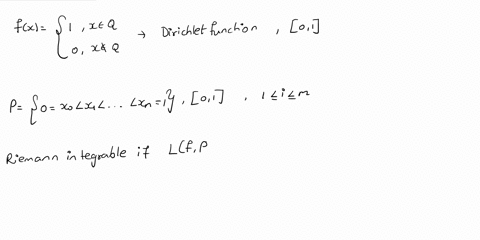 f(x) = { 1 , x ∈ Q → Dirichlet function , [0,1]
0, x ∉ Q
P = { 0 = x₀ < x₁ < ... < xₙ = 1 } , [0,1] , 1 ≤ i ≤ n
Riemann integrable if L(f,P